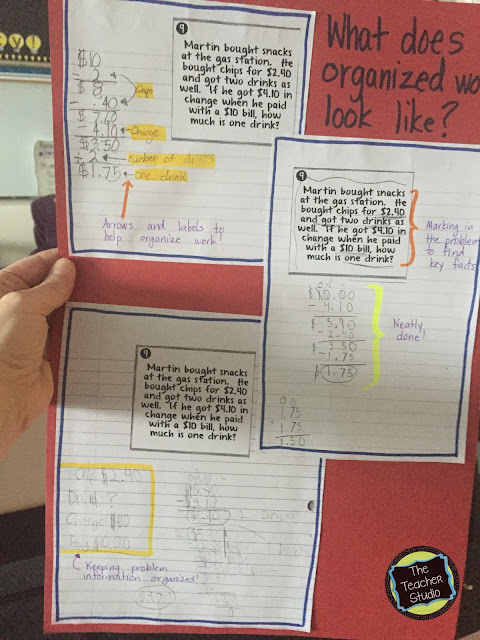 What does
organized wo
look like?
9
Martin bought snacks
at the gas station. He
bought chips for $2.40
and got two drinks as
well. If he got $4.10 in
change when he paid
with a $10 bill, how
much is one drink?
$10
- 2
$ 8
- .40
Chips
$7.60
- 4.10
Change
$3.50
÷ 2
number of drinks
$1.75
one drink
Arrows and labels to
help organize work!
9
Martin bought snacks
at the gas station. He
bought chips for $2.40
and got two drinks as
well. If he got $4.10 in
change when he paid
with a $10 bill, how
much is one drink?
Marking in
the problem
to find
key facts
$10.00
- 4.10
$ 5.90
- 2.40
$ 3.50
- 1.75
$ 1.75
Neatly
done!
1.75
+ 1.75
3.50
9
Martin bought snacks
at the gas station. He
bought chips for $2.40
and got two drinks as
well. If he got $4.10 in
change when he paid
with a $10 bill, how
much is one drink?
$2.40
?
$10.00
Keeping problem
information organized!
The
Teacher
Studio